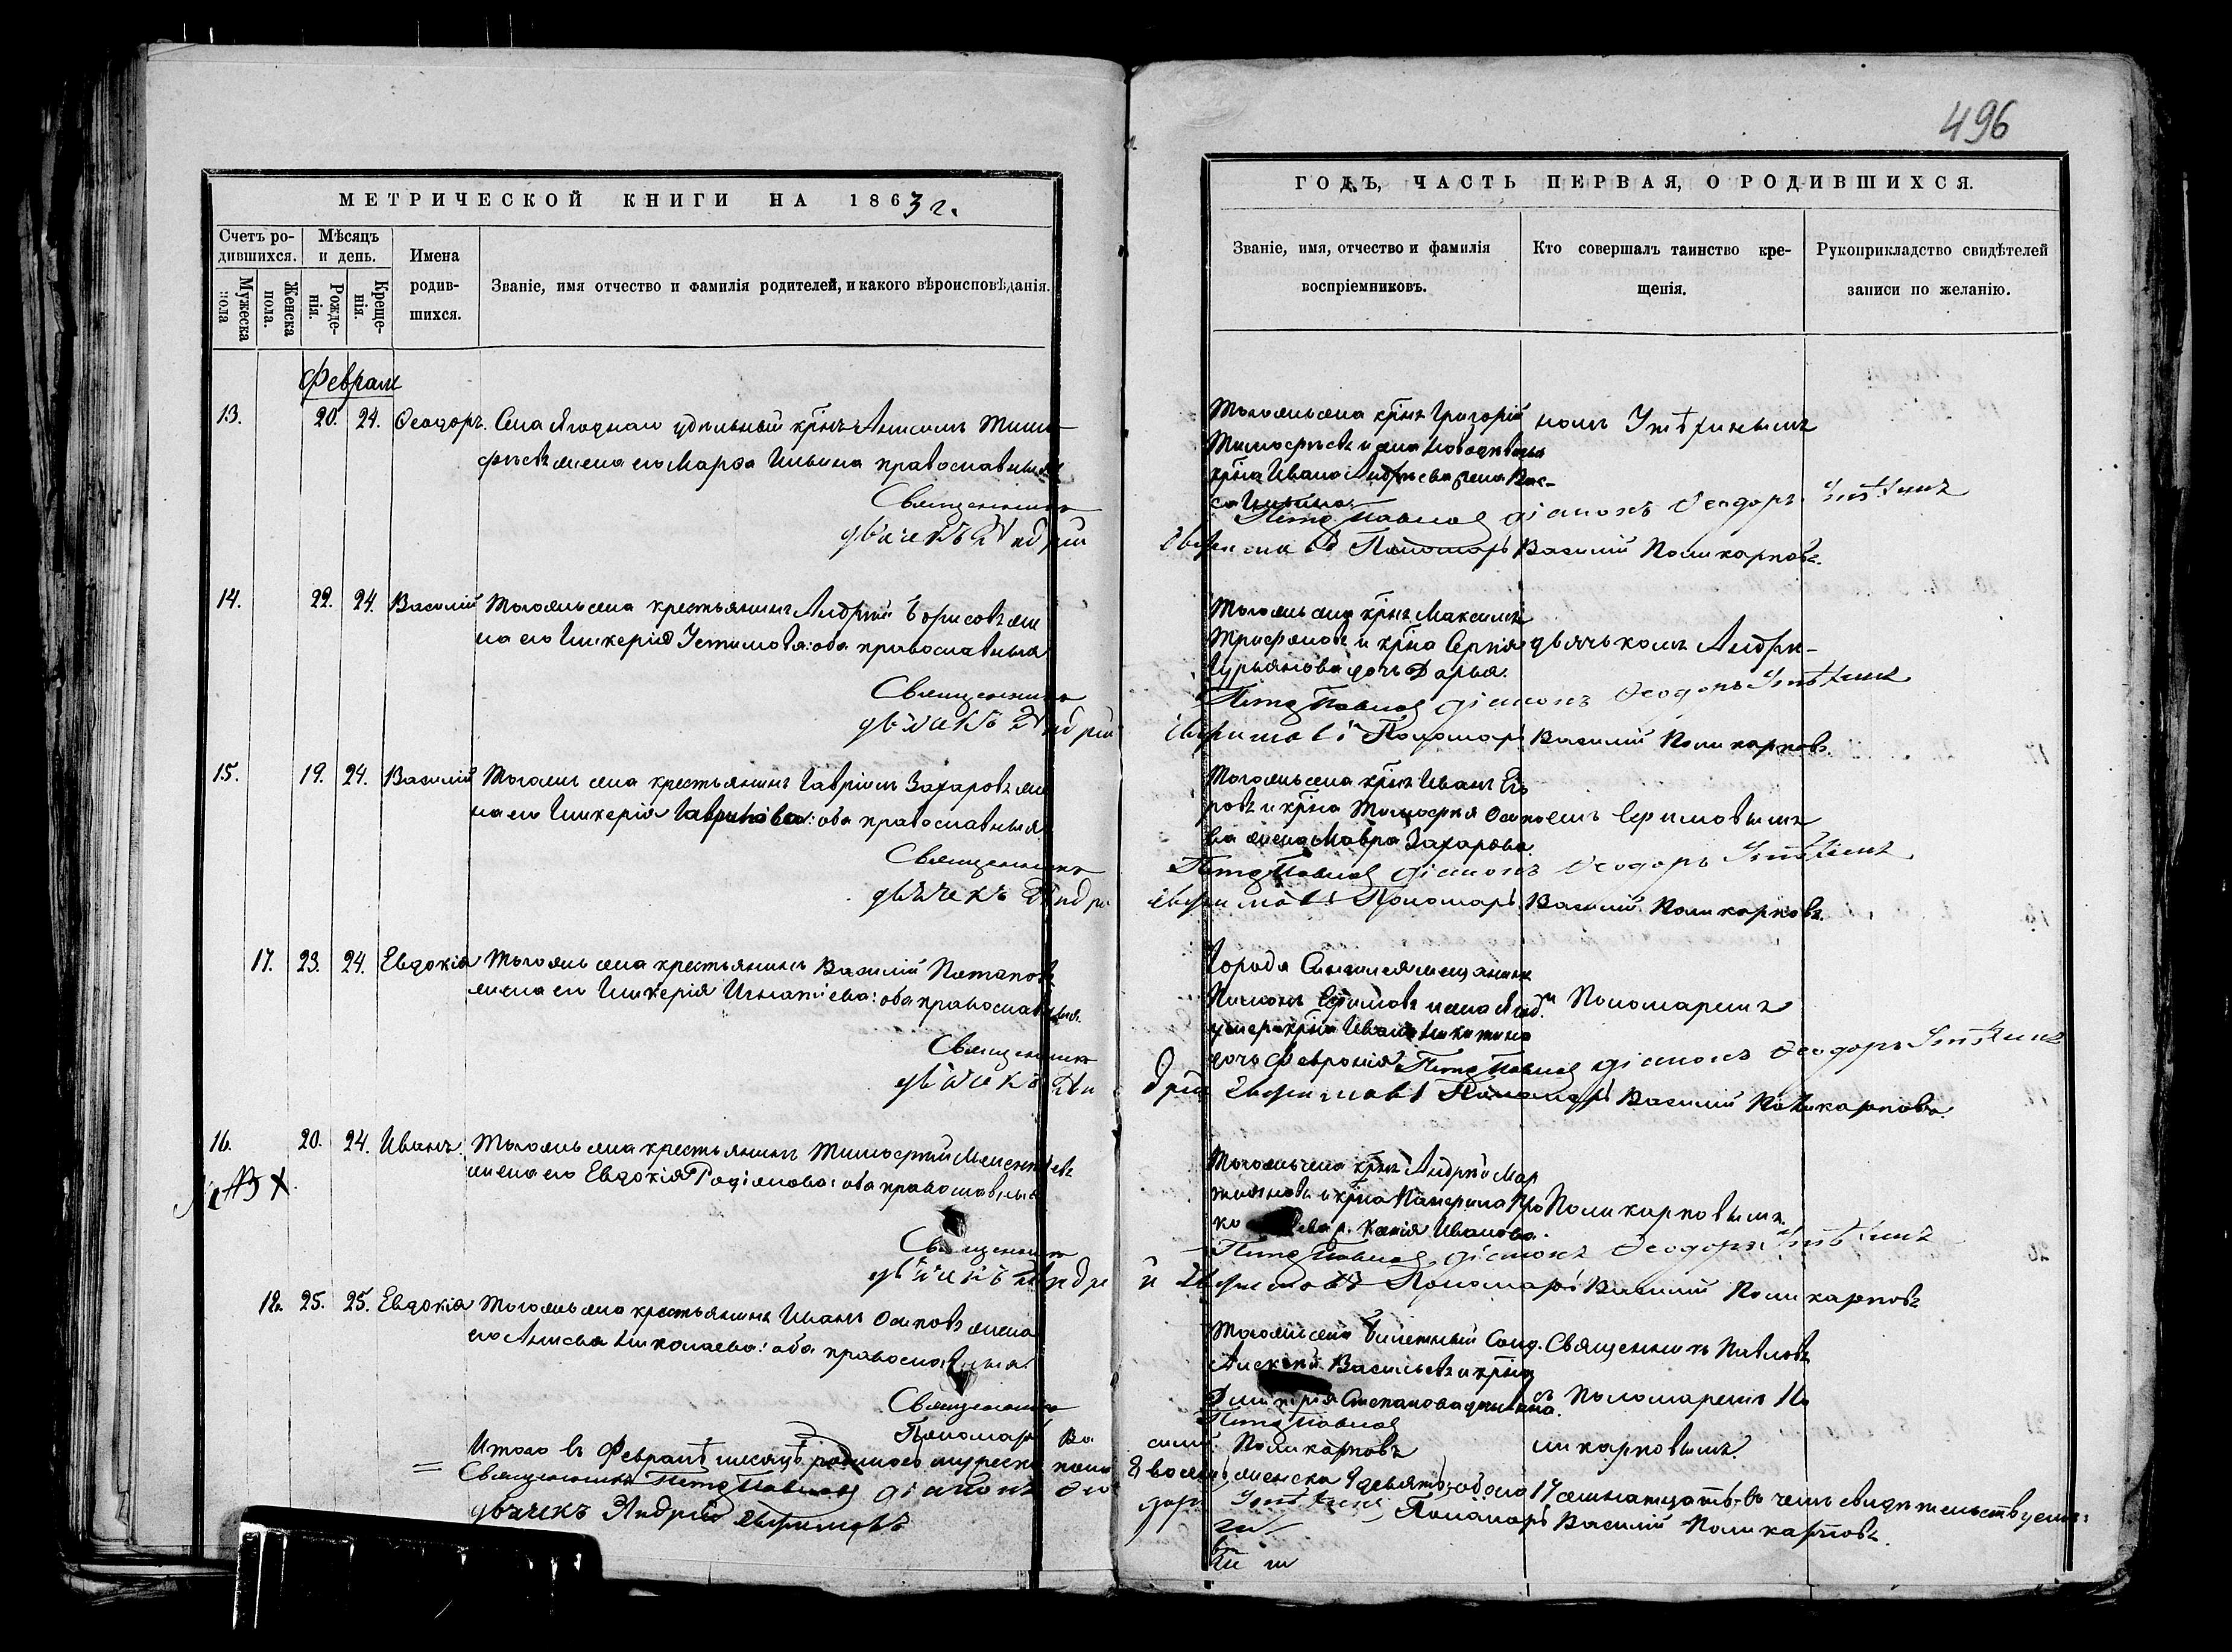 496
МЕТРИЧЕСКОЙ КНИГИ НА 1863 г.
Счетъ родившихся.
Мужеска пола
Женска пола.
Мѣсяцъ и день.
Рожденія.
Крещенія.
Имена родившихся.
Званіе, имя отчество и фамилія родителей, и какого вѣроисповѣданія.
ГОДЪ, ЧАСТЬ ПЕРВАЯ, О РОДИВШИХСЯ.
Званіе, имя, отчество и фамилія воспріемниковъ.
Кто совершалъ таинство крещенія.
Рукоприкладство свидѣтелей записи по желанію.
Февраля
13. 20. 24. Ѳеодоръ. Села Ягоднаго удѣльный крнъ Анисимъ Тимо-
фѣевъ жена его Марѳа Ильина православныя
Тогоже села крнъ Григорій
Тимофѣевъ и села
крна Ивана Андреева жена Вас-
са Ильина.
номъ
Священникъ Петръ Павловъ діаконъ Ѳеодоръ
дьячекъ Андрей Ефимовъ Пономарь Василій Поликарповъ.
14. 22. 24. Василій Тогоже села крестьянинъ Андрей Борисовъ же
на его Гликерія Устимова: оба православныя
Тогоже села крнъ Максимъ
Трифоновъ и крна Сергія
Гурьянова дочь Дарья.
дьячькомъ Андре-
Священникъ Петръ Павловъ діаконъ Ѳеодоръ
дьячекъ Андрей Ефимовъ Пономарь Василій Поликарповъ.
15. 19. 24. Василій Тогоже села крестьянинъ Гавріилъ Захаровъ же
на его Гликерія Гаврилова: оба православныя
Тогоже села крнъ Иванъ Ег
ровъ и крна Тимофея Осипо
ва жена Мавра Захарова.
емъ Ефимовымъ
Священникъ Петръ Павловъ діаконъ Ѳеодоръ
дьячекъ Андрей Ефимовъ Пономарь Василій Поликарповъ.
17. 23. 24. Евдокія Тогоже села крестьянинъ Василій Потаповъ
жена его Гликерія Игнатіева: оба православныя.
Города мещанинъ
Ефимовъ и села Ягод.
крна Ивана Никитина
дочь Февронія
Пономаремъ
Священникъ Петръ Павловъ діаконъ Ѳеодоръ
дьячекъ Андрей Ефимовъ Пономарь Василій Поликарповъ.
16. 20. 24. Иванъ. Тогоже села крестьянинъ Тимофей
жена его Евдокія Родіонова: оба православныя
Тогоже села крнъ Андрей Мар
тиновъ и крна
Ксенія Иванова.
Поликарповымъ.
Священникъ Петръ Павловъ діаконъ Ѳеодоръ
дьячекъ Андрей Ефимовъ Пономарь Василій Поликарповъ
25. 25. Евдокія Тогоже села крестьянинъ Иванъ Осиповъ жена
его Анисья Николаева: оба православныя.
Тогоже села билетный Солд.
Алексѣй Васильевъ и крна
Димитрія Степанова дочь
Священникъ Павловъ
съ Пономаремъ По
ликарповымъ.
Священникъ Петръ Павловъ
Пономарь Василій Поликарповъ
Итого въ Февралѣ месяцѣ родилось мужеска пола 8 восемь, женска 9 девять, обоего 17 семнатцать, въ чемъ свидетельствуемъ:
Священникъ Петръ Павловъ діаконъ Ѳеодоръ
дьячекъ Андрей Ефимовъ Пономарь Василій Поликарповъ.